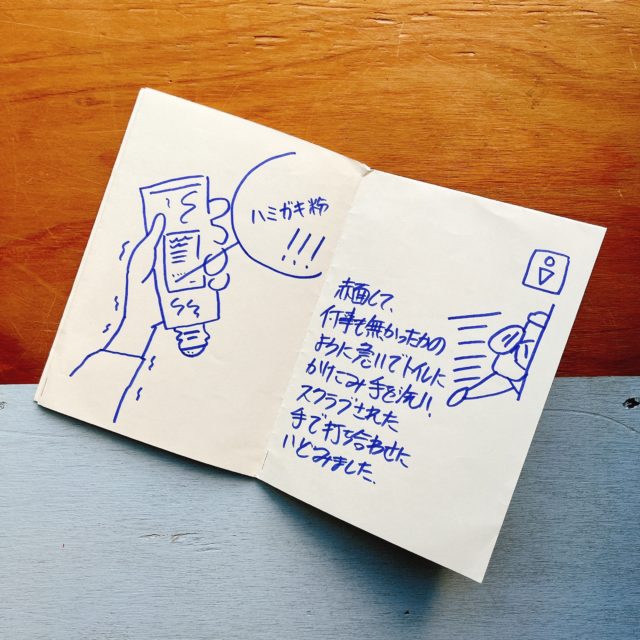 ハミガキ粉
!!!
赤面して、
何事も無かったかの
ように急いでトイレに
かけこみ手を洗い、
スクラブされた
手で打ち合わせに
いどみました。